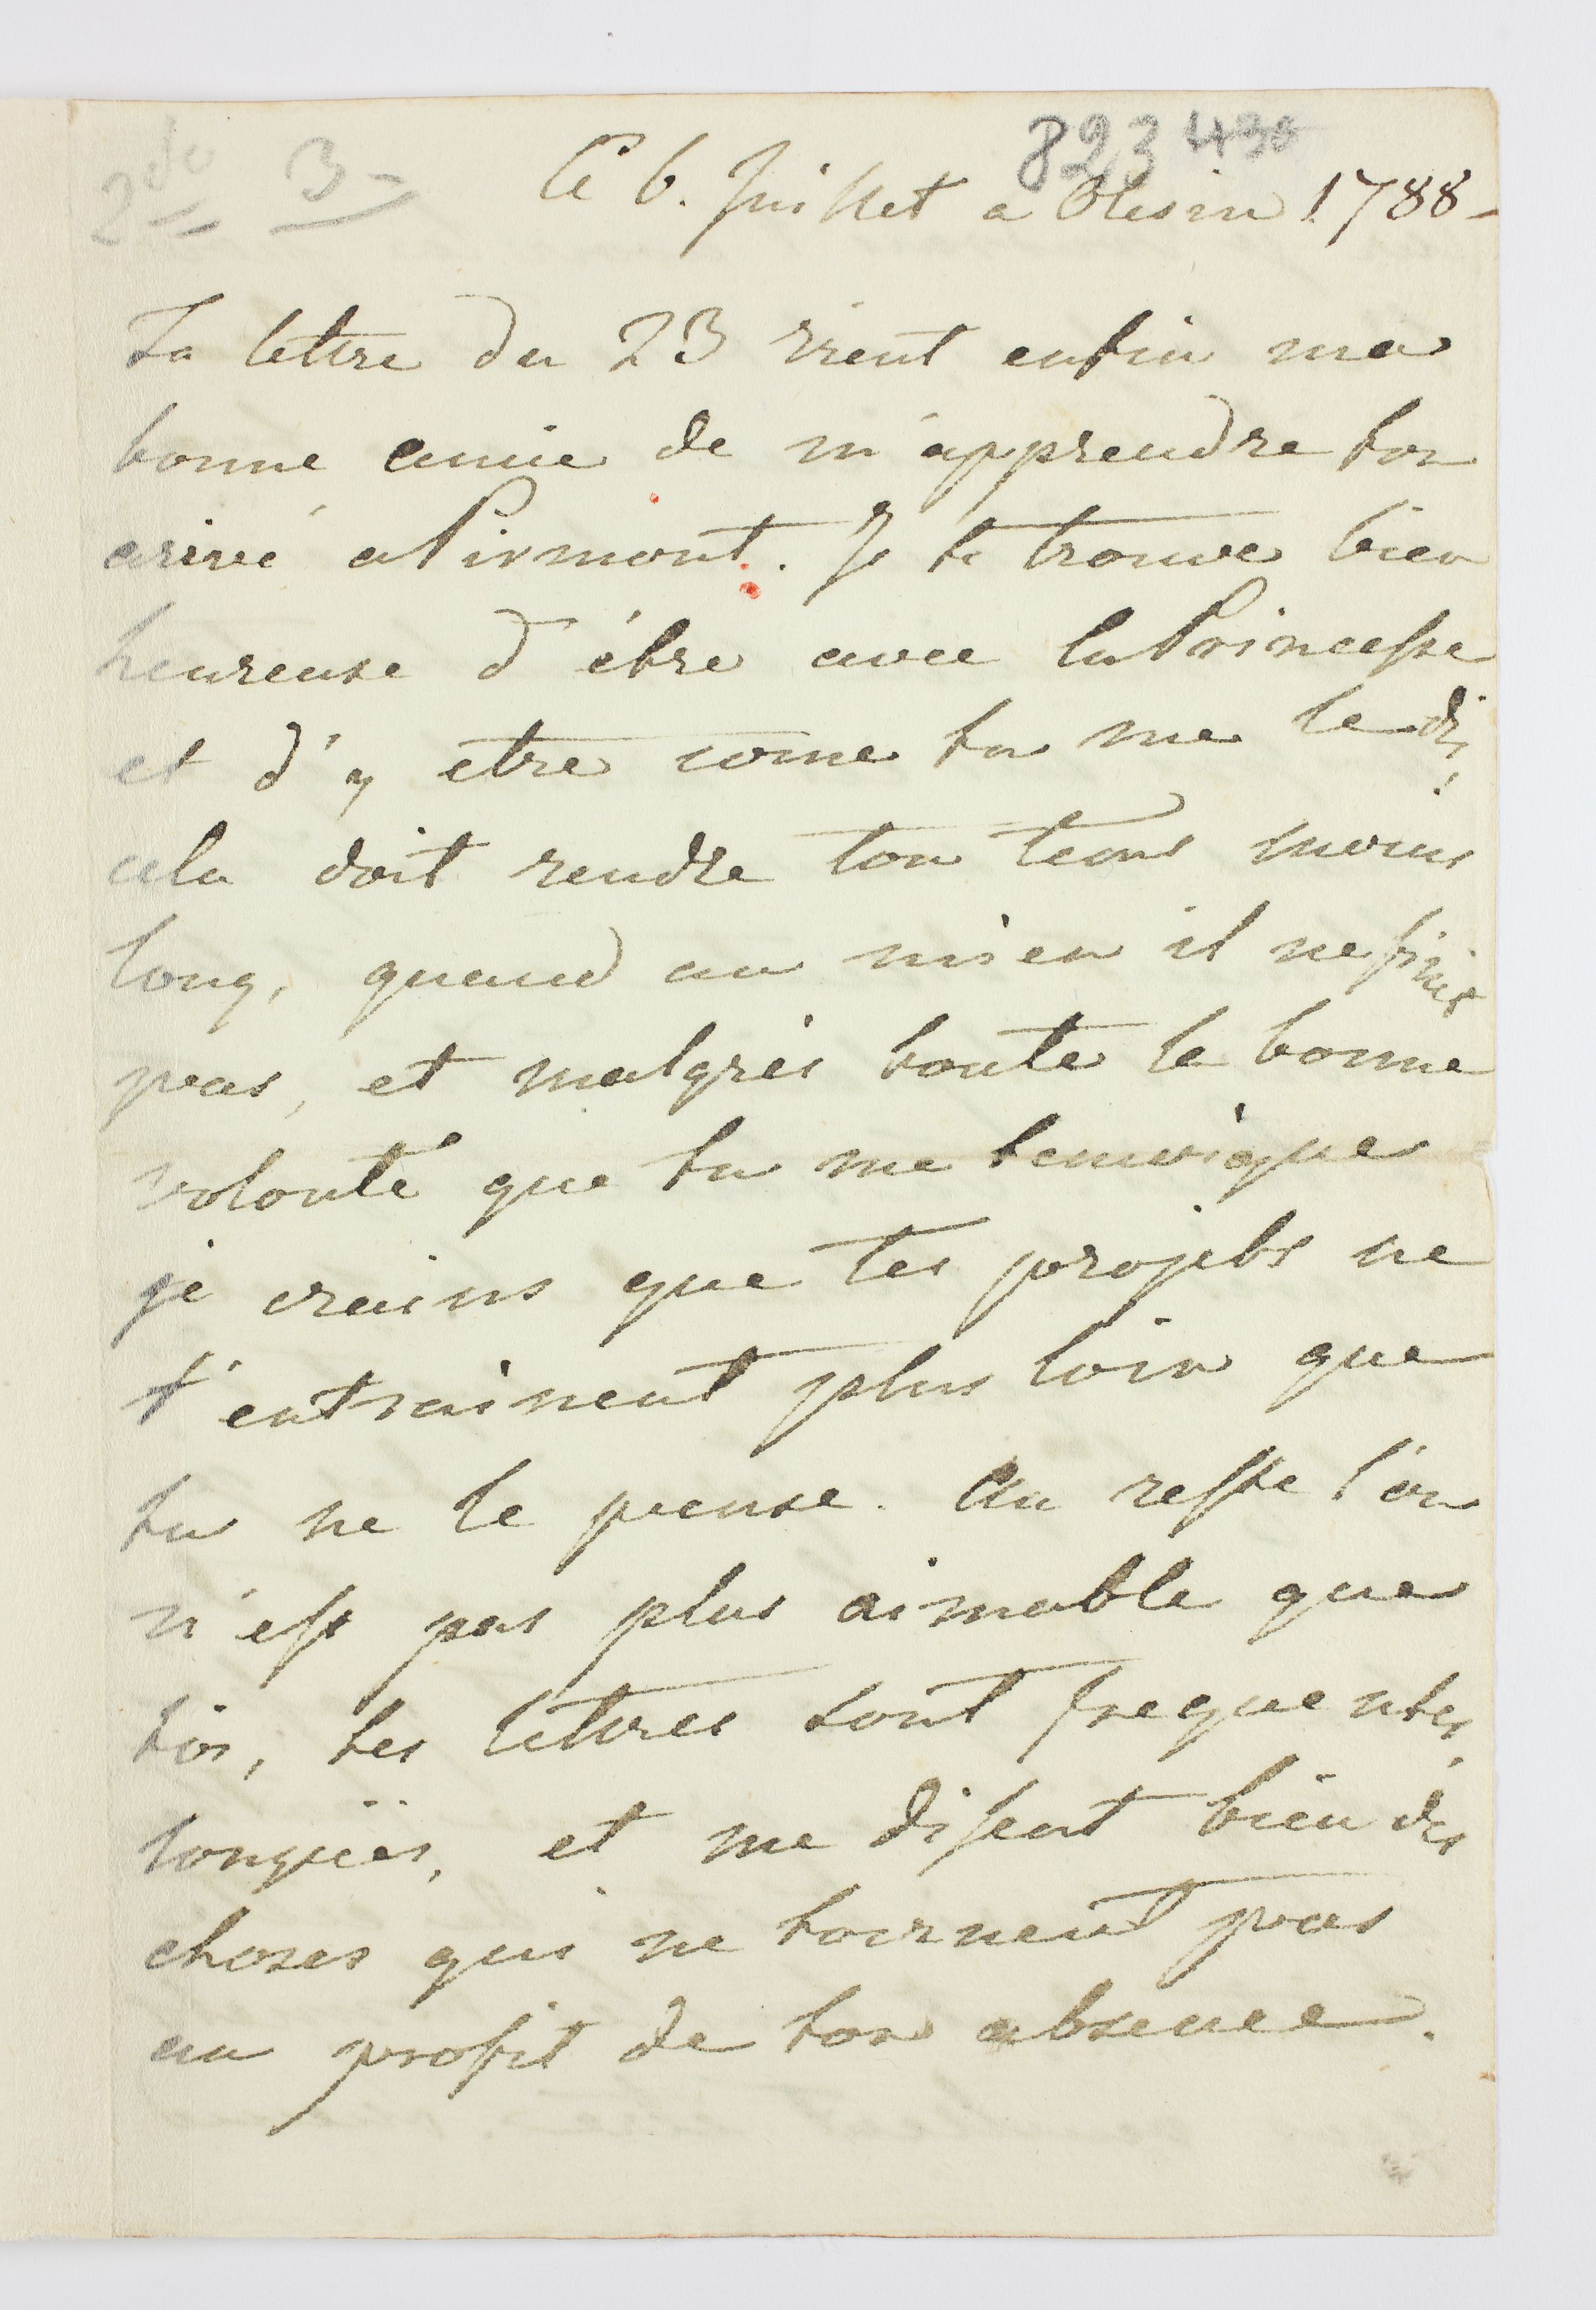 2de 3-
823 430
Ce 6. Juillet a Olesin 1788-
Ta lettre du 23 vient enfin ma
bonne amie de m'apprendre ton
arivé a Pirmont. Je te trouve bien
heureuse d'être avec la Princesse
et d'y etre come tu me le dis,
cela doit rendre ton tems moins
long, quand au mien il ne finit
pas, et malgrés toute la bonne
volonté que tu me temoigne
je crains que tes projets ne
t'entrainent plus loin que
tu ne le pense. Au reste l'on
n'est pas plus aimable que
toi, tes lettres sont frequentes,
longües, et me disent bien des
choses qui ne tournent pas
au profit de ton absence.